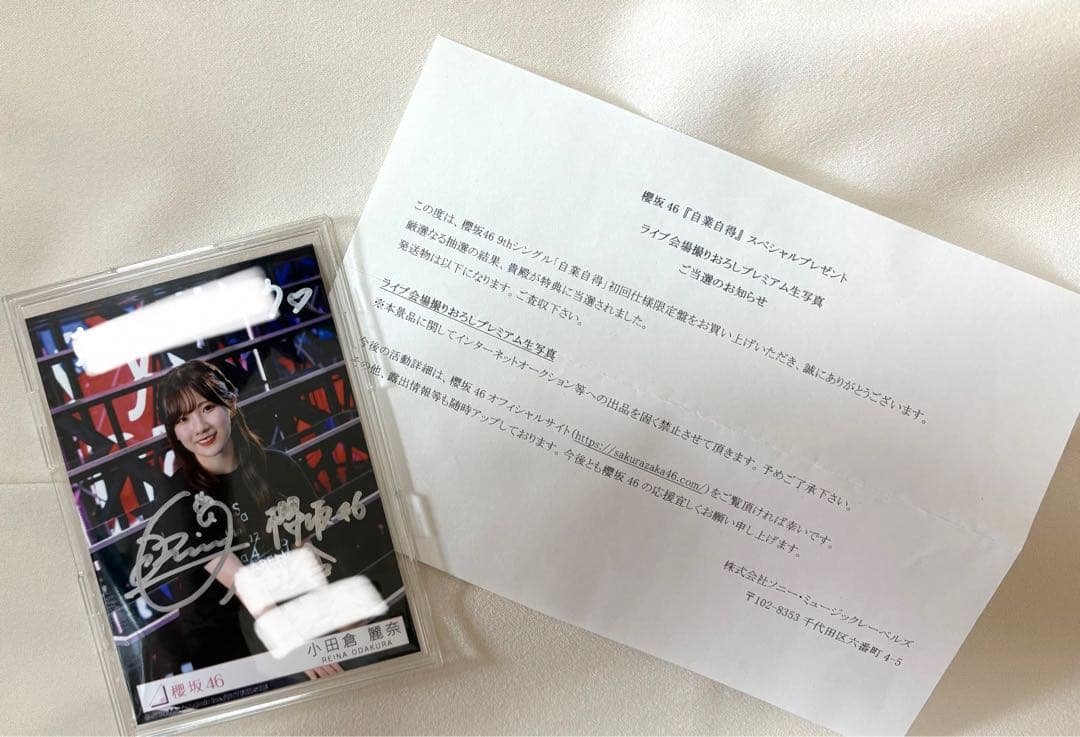 櫻坂46『自業自得』スペシャルプレゼント
ライブ会場撮りおろしプレミアム生写真
ご当選のお知らせ
この度は、櫻坂46 9thシングル「自業自得」初回仕様限定盤をお買い上げいただき、誠にありがとうございます。
厳選なる抽選の結果、貴殿が特典に当選されました。
発送物は以下になります。ご査収下さい。
ライブ会場撮りおろしプレミアム生写真
※本景品に関してインターネットオークション等への出品を固く禁止させて頂きます。予めご了承下さい。
今後の活動詳細は、櫻坂46オフィシャルサイト(https://sakurazaka46.com/)をご覧頂ければ幸いです。
その他、露出情報等も随時アップしております。今後とも櫻坂46の応援宜しくお願い申し上げます。
株式会社ソニー・ミュージックレーベルズ
〒102-8353 千代田区六番町4-5
Reina
櫻坂46
小田倉 麗奈
REINA ODAKURA
櫻坂46